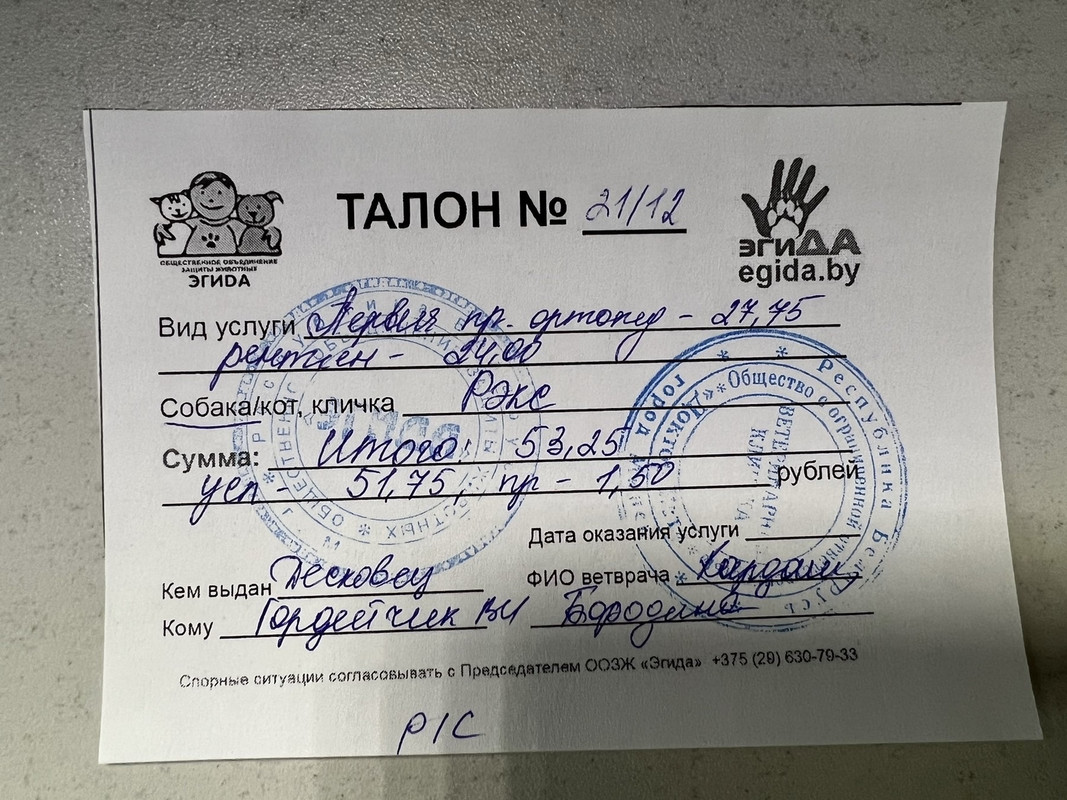 ОБЩЕСТВЕННОЕ ОБЪЕДИНЕНИЕ
ЗАЩИТЫ ЖИВОТНЫХ
ЭГИДА
ТАЛОН № 21/12
эгиДА
egida.by
Вид услуги Первич пр. ортопед - 27,75
рентген - 24,00
Собака/кот, кличка Рэкс
Сумма: Итого: 53,25
усл - 51,75; пр - 1,50 рублей
Дата оказания услуги
Кем выдан Десковец
ФИО ветврача Кардаш,
Кому Гордейчик ВИ
Бородина
Спорные ситуации согласовывать с Председателем ООЗЖ «Эгида» +375 (29) 630-79-33
Р/С
Республика Беларусь
город
Общество с ограниченной
«Доктор
ВЕТЕРИНАРН